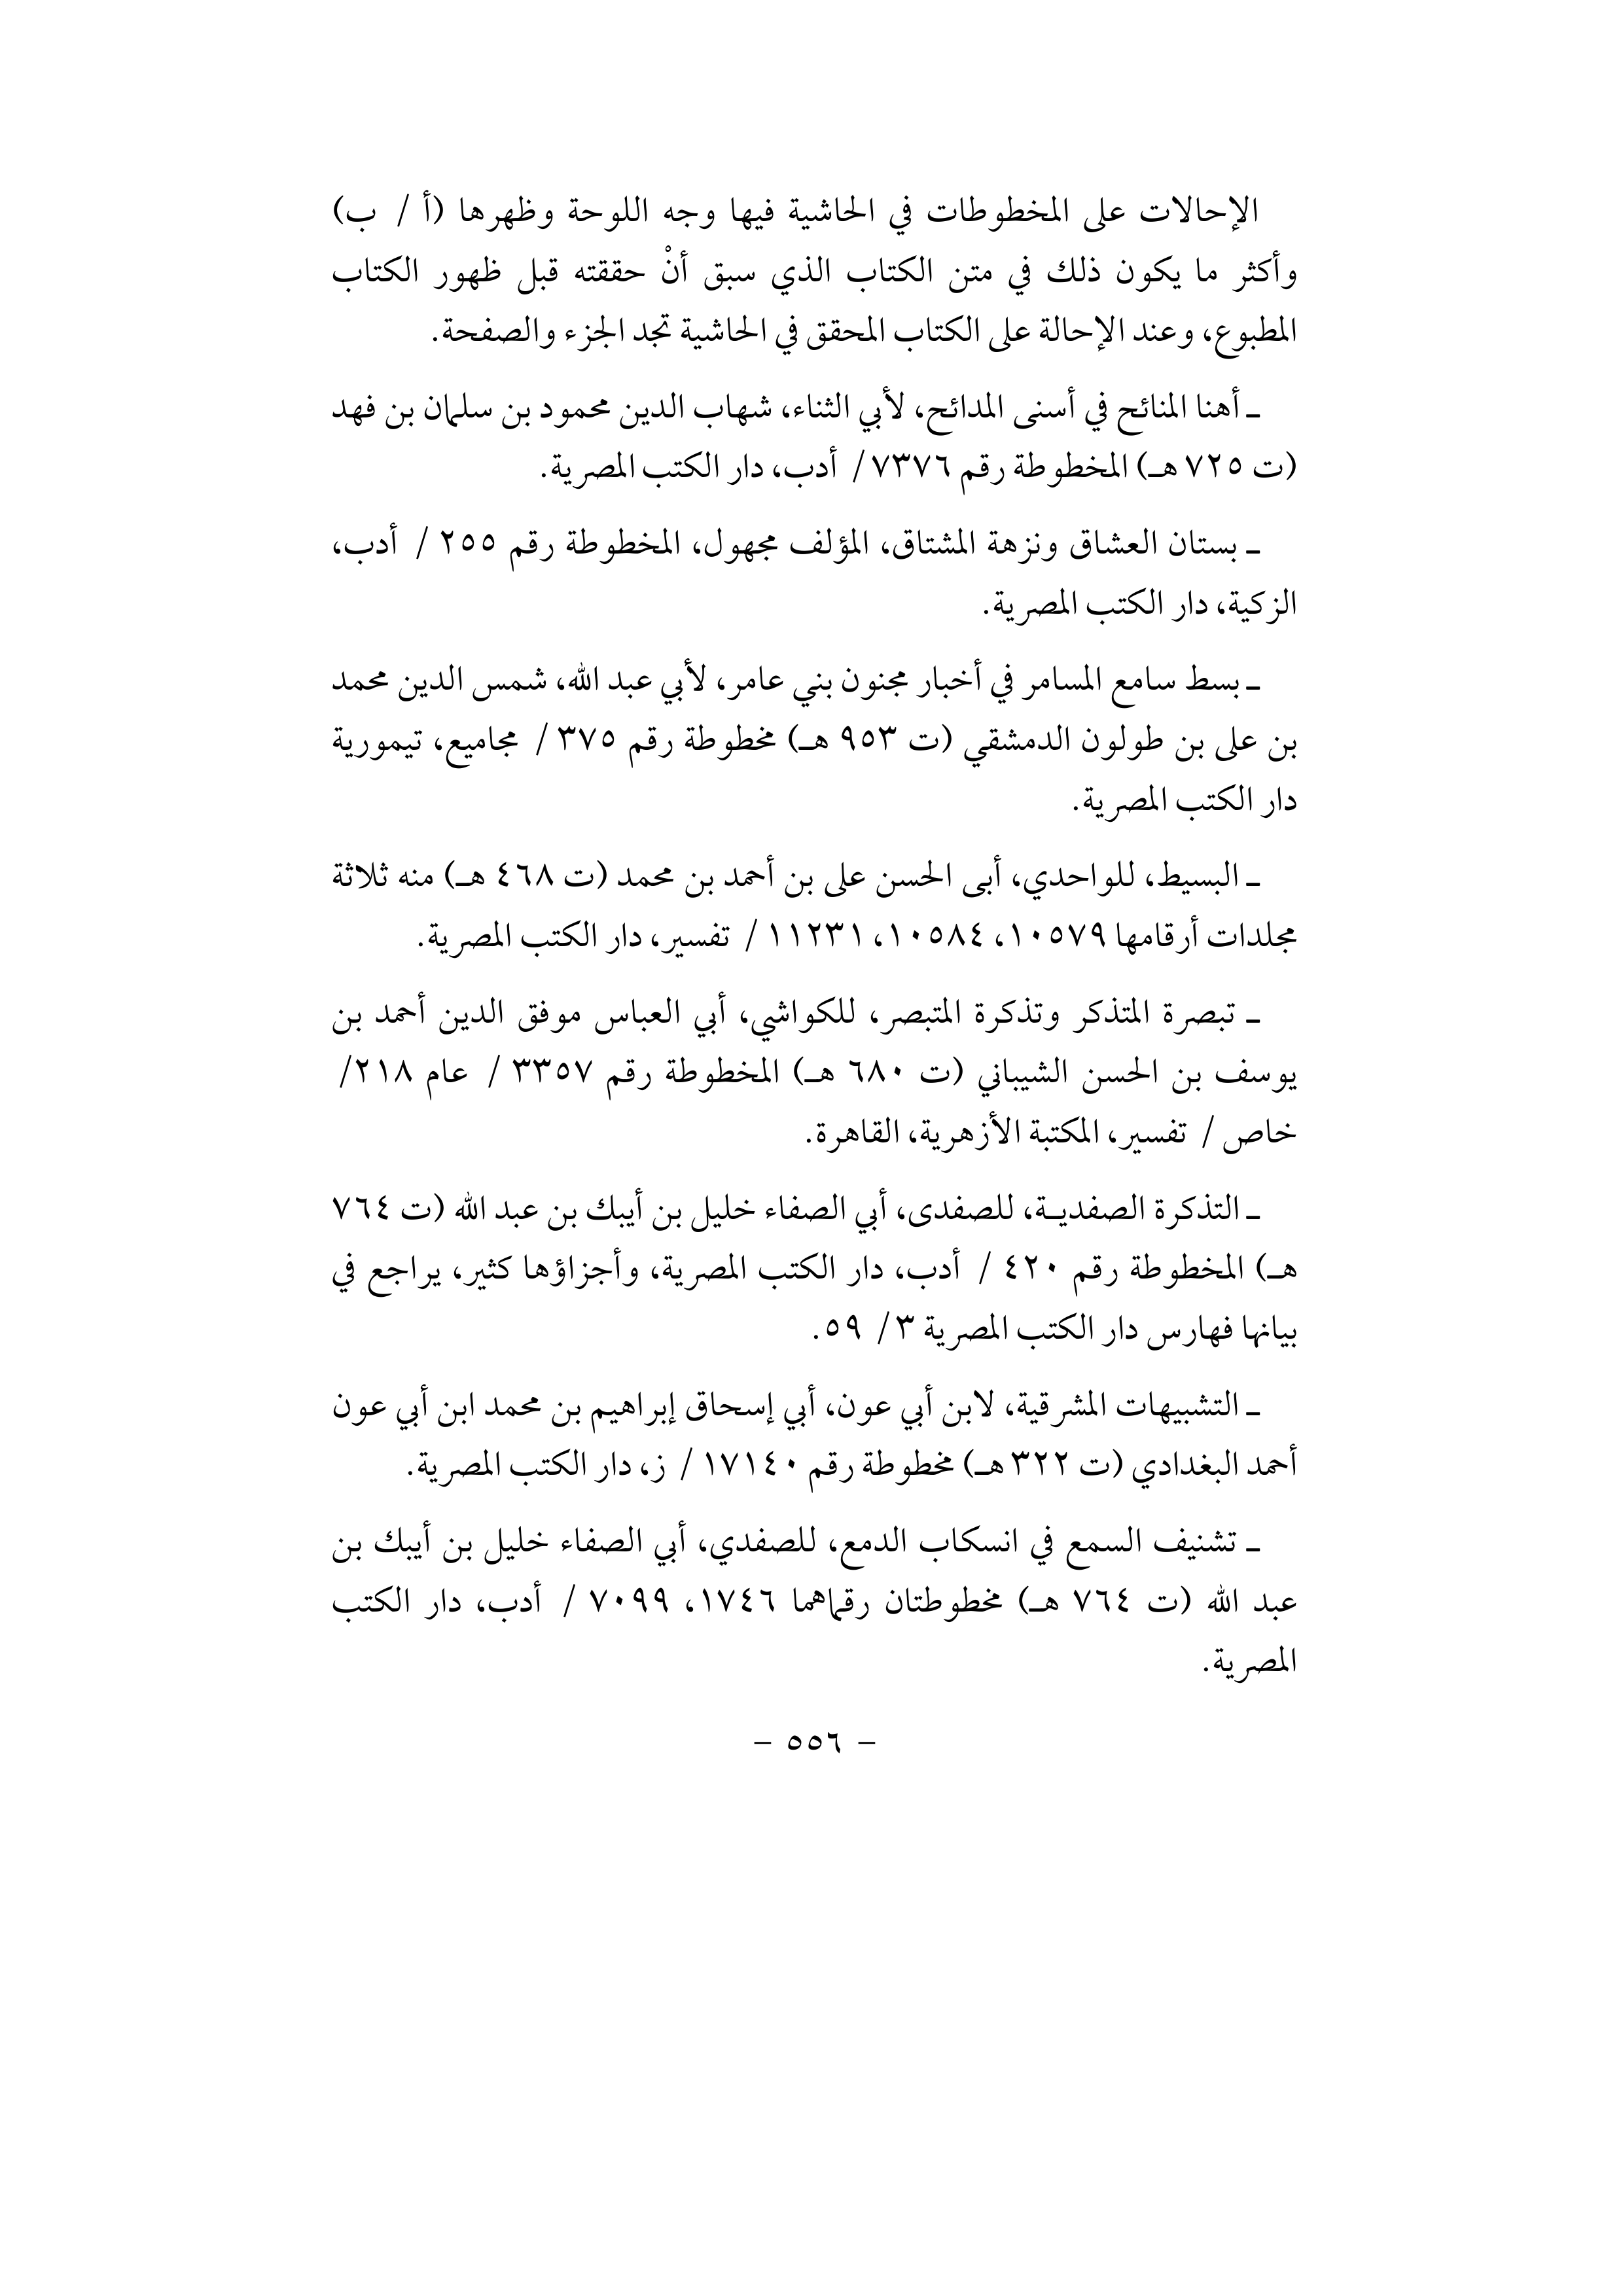 الإحالات على المخطوطات في الحاشية فيها وجه اللوحة وظهرها (أ / ب)
وأكثر ما يكون ذلك في متن الكتاب الذي سبق أنْ حققته قبل ظهور الكتاب
المطبوع، وعند الإحالة على الكتاب المحقق في الحاشية تجد الجزء والصفحة.
ـ أهنا المنائح في أسنى المدائح، لأبي الثناء، شهاب الدين محمود بن سلمان بن فهد
(ت ٧٢٥ هـ) المخطوطة رقم ٧٣٧٦/ أدب، دار الكتب المصرية.
ـ بستان العشاق ونزهة المشتاق، المؤلف مجهول، المخطوطة رقم ٢٥٥ / أدب،
الزكية، دار الكتب المصرية.
ـ بسط سامع المسامر في أخبار مجنون بني عامر، لأبي عبد الله، شمس الدين محمد
بن على بن طولون الدمشقي (ت ٩٥٣ هـ) مخطوطة رقم ٣٧٥ / مجاميع، تيمورية
دار الكتب المصرية.
ـ البسيط، للواحدي، أبى الحسن على بن أحمد بن محمد (ت ٤٦٨ هـ) منه ثلاثة
مجلدات أرقامها ١٠٥٧٩، ١٠٥٨٤، ١١٢٣١ / تفسير، دار الكتب المصرية.
ـ تبصرة المتذكر وتذكرة المتبصر، للكواشي، أبي العباس موفق الدين أحمد بن
يوسف بن الحسن الشيباني (ت ٦٨٠ هـ) المخطوطة رقم ٣٣٥٧ / عام ٢١٨/
خاص / تفسير، المكتبة الأزهرية، القاهرة.
ـ التذكرة الصفديـة، للصفدى، أبي الصفاء خليل بن أيبك بن عبد الله (ت ٧٦٤
هـ) المخطوطة رقم ٤٢٠ / أدب، دار الكتب المصرية، وأجزاؤها كثير، يراجع في
بيانها فهارس دار الكتب المصرية ٣/ ٥٩.
ـ التشبيهات المشرقية، لابن أبي عون، أبي إسحاق إبراهيم بن محمد ابن أبي عون
أحمد البغدادي (ت ٣٢٢ هـ) مخطوطة رقم ١٧١٤٠ / ز، دار الكتب المصرية.
ـ تشنيف السمع في انسكاب الدمع، للصفدي، أبي الصفاء خليل بن أيبك بن
عبد الله (ت ٧٦٤ هـ) مخطوطتان رقماهما ١٧٤٦، ٧٠٩٩ / أدب، دار الكتب
المصرية.
- ٥٥٦ -